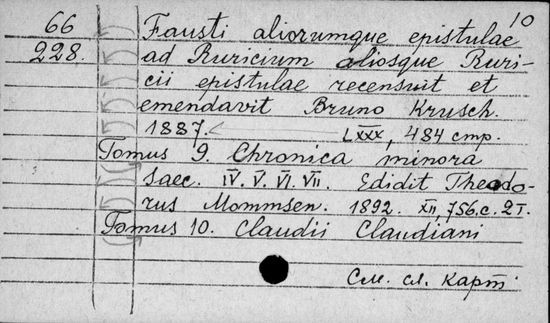 10
66 Fausti aliorumque epistulae
228. ad Ruricium aliosque Ruri-
cii epistulae recensuit et
emendavit Bruno Krusch.
1887. LXXX, 484 стр.
Tomus 9. Chronica minora
saec. IV. V. VI. VII. Edidit Theodo-
rus Mommsen. 1892. XII, 756.с. 2т.
Tomus 10. Claudii Claudiani
См. сл. карт